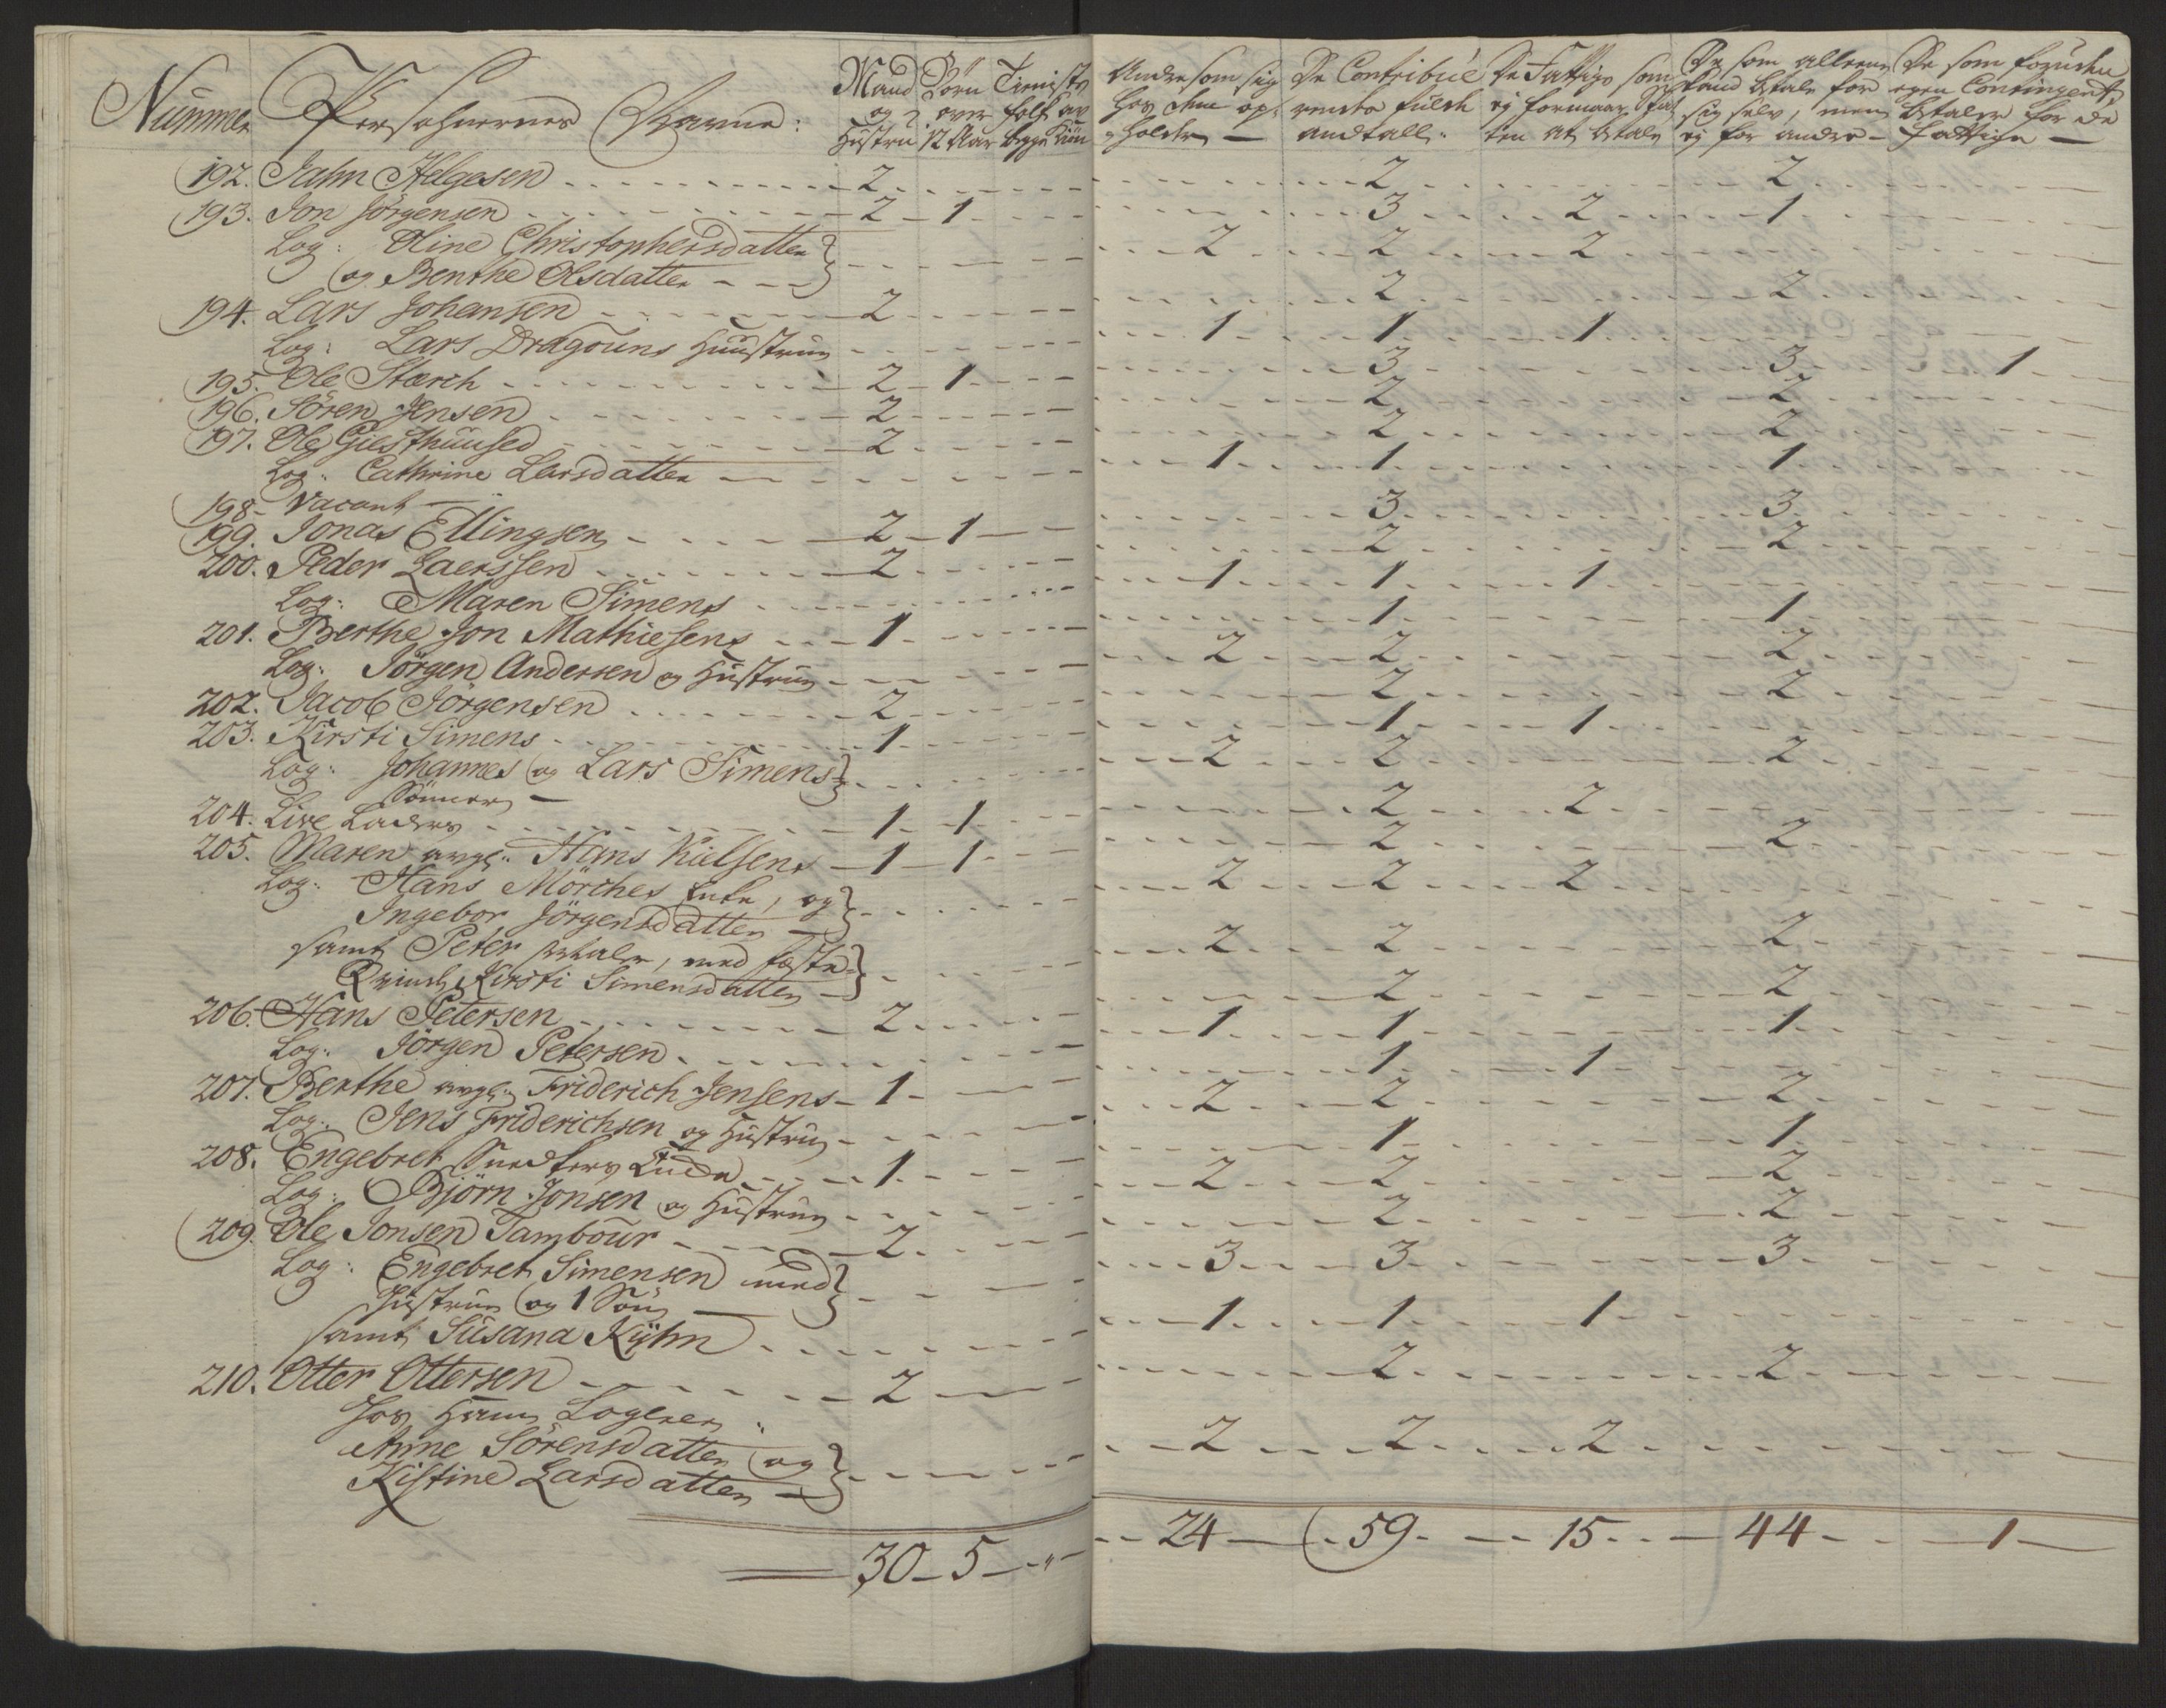 Nummer Persohnernes Navne: Mand og Hustru Börn over 12 Aar Tieniste folk av begge Kiön Andre som sig hos dem opholder De Contribuerendes fulde Andtall De Fattige som ej formaar Skatten at betale De som alleene kand betale for sig selv, men ej for andre De som foruden egen Contingent betaler for de Fattige
192. Jahn Helgesen 2 2 2
193. Jon Jörgensen 2 1 3 2 1
Log: Oline Christophersdatter 2 2 2
og Benthe Olsdatter
194. Lars Johansen 2 2 2
Log: Lars Dragouns Huustrue 1 1 1
195. Ole Stærch 2 1 3 3 1
196. Sören Jensen 2 2 2
197. Ole Giesthuused 2 2 2
Log: Cathrine Larsdatter 1 1 1
198 Vacant
199. Jonas Ellingsen 2 1 3 3
200. Peder Laerssen 2 2 2
Log: Maren Simens 1 1 1
201. Berthe Jon Mathiesens 1 1 1
Log: Jörgen Andersen og Hustrue 2 2 2
202. Jacob Jörgensen 2 2 2
203. Kirsti Simens 1 1 1
Log: Johannes og Lars Simens 2 2 2
Sönner
204. Live Laders 1 1 2 2
205. Maren avgl: Hans Kielsens 1 1 2 2
Log: Hans Mörches Enke, og 2 2 2
Ingebor Jörgensdatter
samt Peter med fæste 2 2 2
Qvinde Kirsti Simensdatter
206. Hans Petersen 2 2 2
Log: Jörgen Petersen 1 1 1
207. Berthe avgl: Friderich Jensens 1 1 1
Log: Jens Friderichsen og Hustrue 2 2 2
208. Engebret 1 1 1
Log: Björn Jonsen og Hustrue 2 2 2
209. Ole Jonsen Tambour 2 2 2
Log: Engebret Simensen med 3 3 3
Hustrue og 1 Sön
samt Susana Kÿhn 1 1 1
210. Otter Ottersen 2 2 2
hos ham Logerer
Anne Sörensdatter og 2 2 2
Kistine Larsdatter
30 5 " 24 59 15 44 1